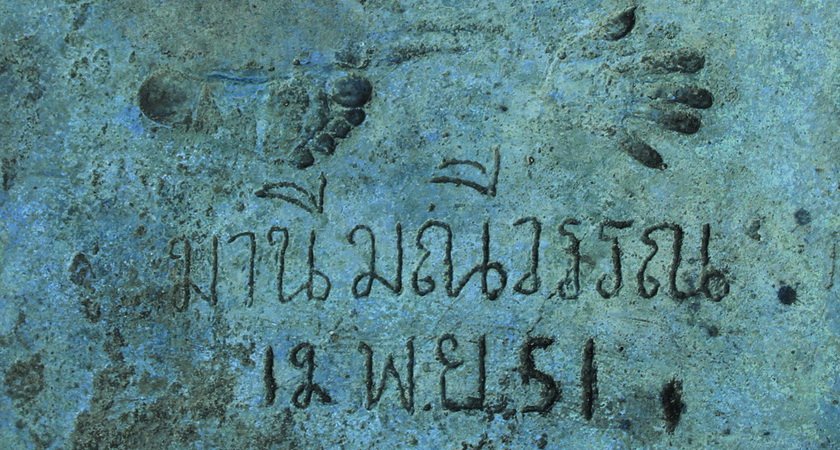 มานี มณีวรรณ
12 พ.ย. 51